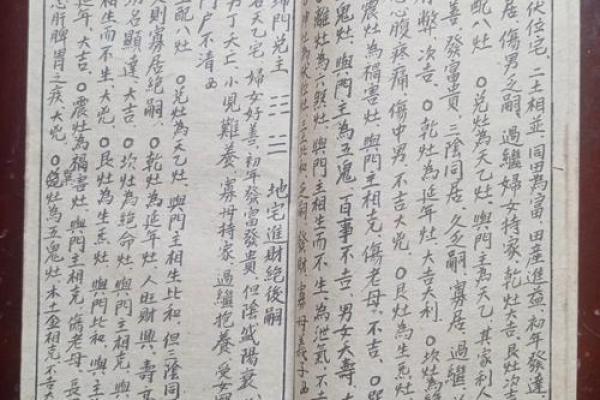 伏位宅、二土相並、同田為富、田產進益、初年發達、
居、傷男乏嗣、過繼婦女持家、乾灶大吉艮灶次吉
配八灶、〇兌灶為天乙灶、與門主為天乙其家利人
善、發富貴、三陰同居、久乏嗣、寡居、過繼、
弊、次吉、〇乾灶為延年灶、大吉大利、〇坎灶為
心腹疼痛、傷中男、不吉大凶、〇艮灶為生炁灶、
震灶為禍害灶、與門主相克、傷老母、不吉、〇巽
鬼灶、與門主為五鬼、百事不吉、男女夭壽、大
離灶為六煞灶、與門主相生而不生、為泄氣、不
發財、寡母義子
坤門兌主 ☷ ☱ 地宅進財絕後嗣
名天乙宅、婦女好善、初年發富發貴、但陰盛陽衰、
男丁夭亡、小兒難養、寡母持家、過繼抱養、愛女
門戶不清
配八灶、〇兌灶為天乙灶、與門主相生比和、但三陰同
久則寡居絕嗣、〇乾灶為延年灶、人旺財興、壽高
功名顯達、大吉、〇坎灶為絕命灶、與門主相克、
生而不生、大凶、〇艮灶為生炁灶、與門比和、與主
大吉、〇震灶為禍害灶、與門主相克、傷老母、長
肝脾胃之疾大凶、灶為五鬼灶木土金相克不吉大